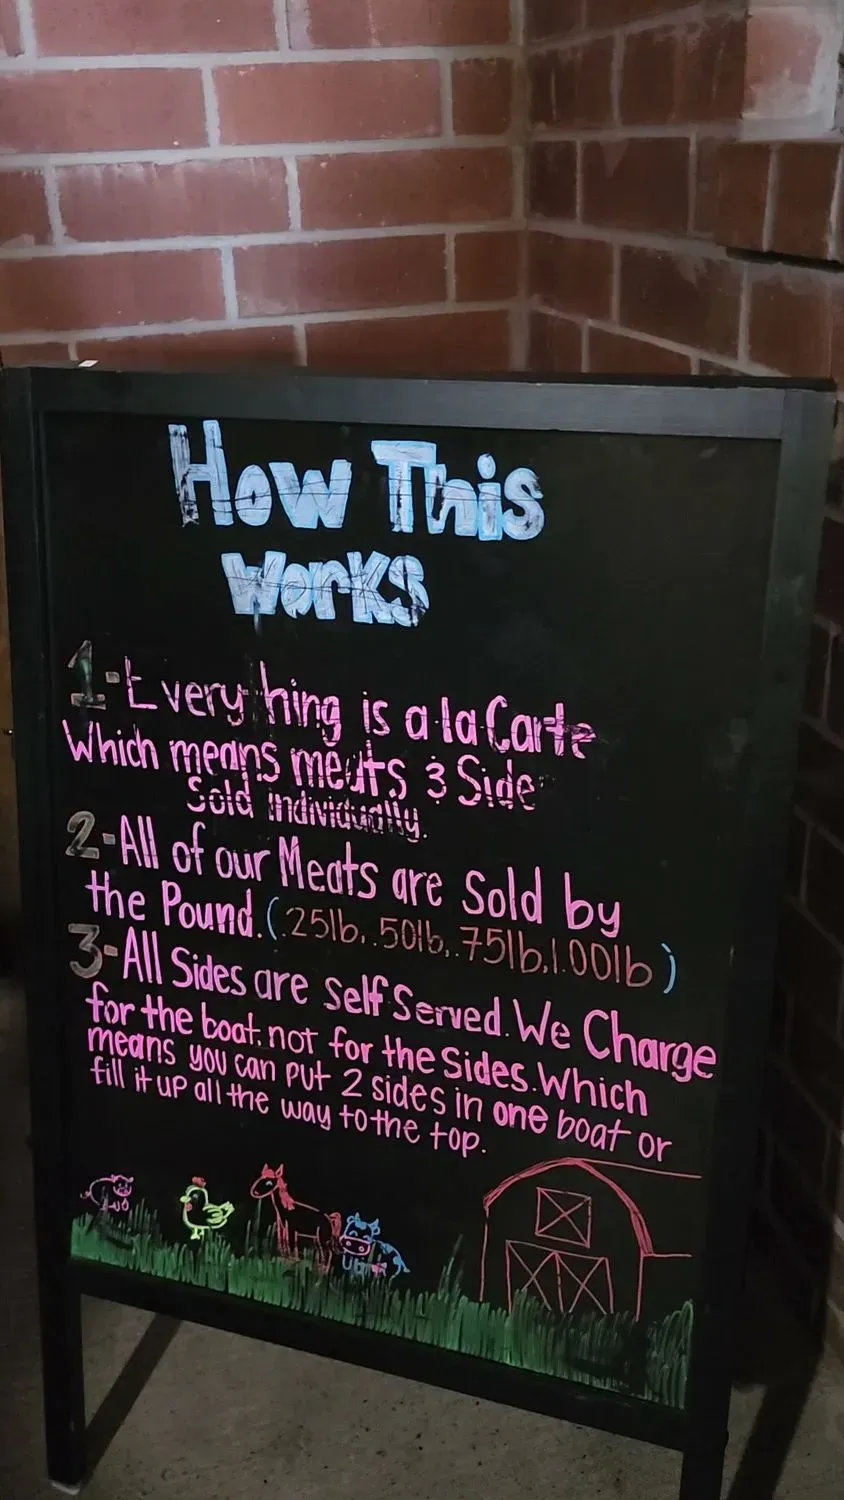 How This
Works
1-Every hing is a la Carte
Which means meats & Side
Sold individually.
2-All of our Meats are Sold by
the Pound. (.25lb, .50lb, .75lb, 1.00lb)
3-All Sides are self Served. We Charge
for the boat, not for the Sides. Which
means you can put 2 sides in one boat or
fill it up all the way to the top.